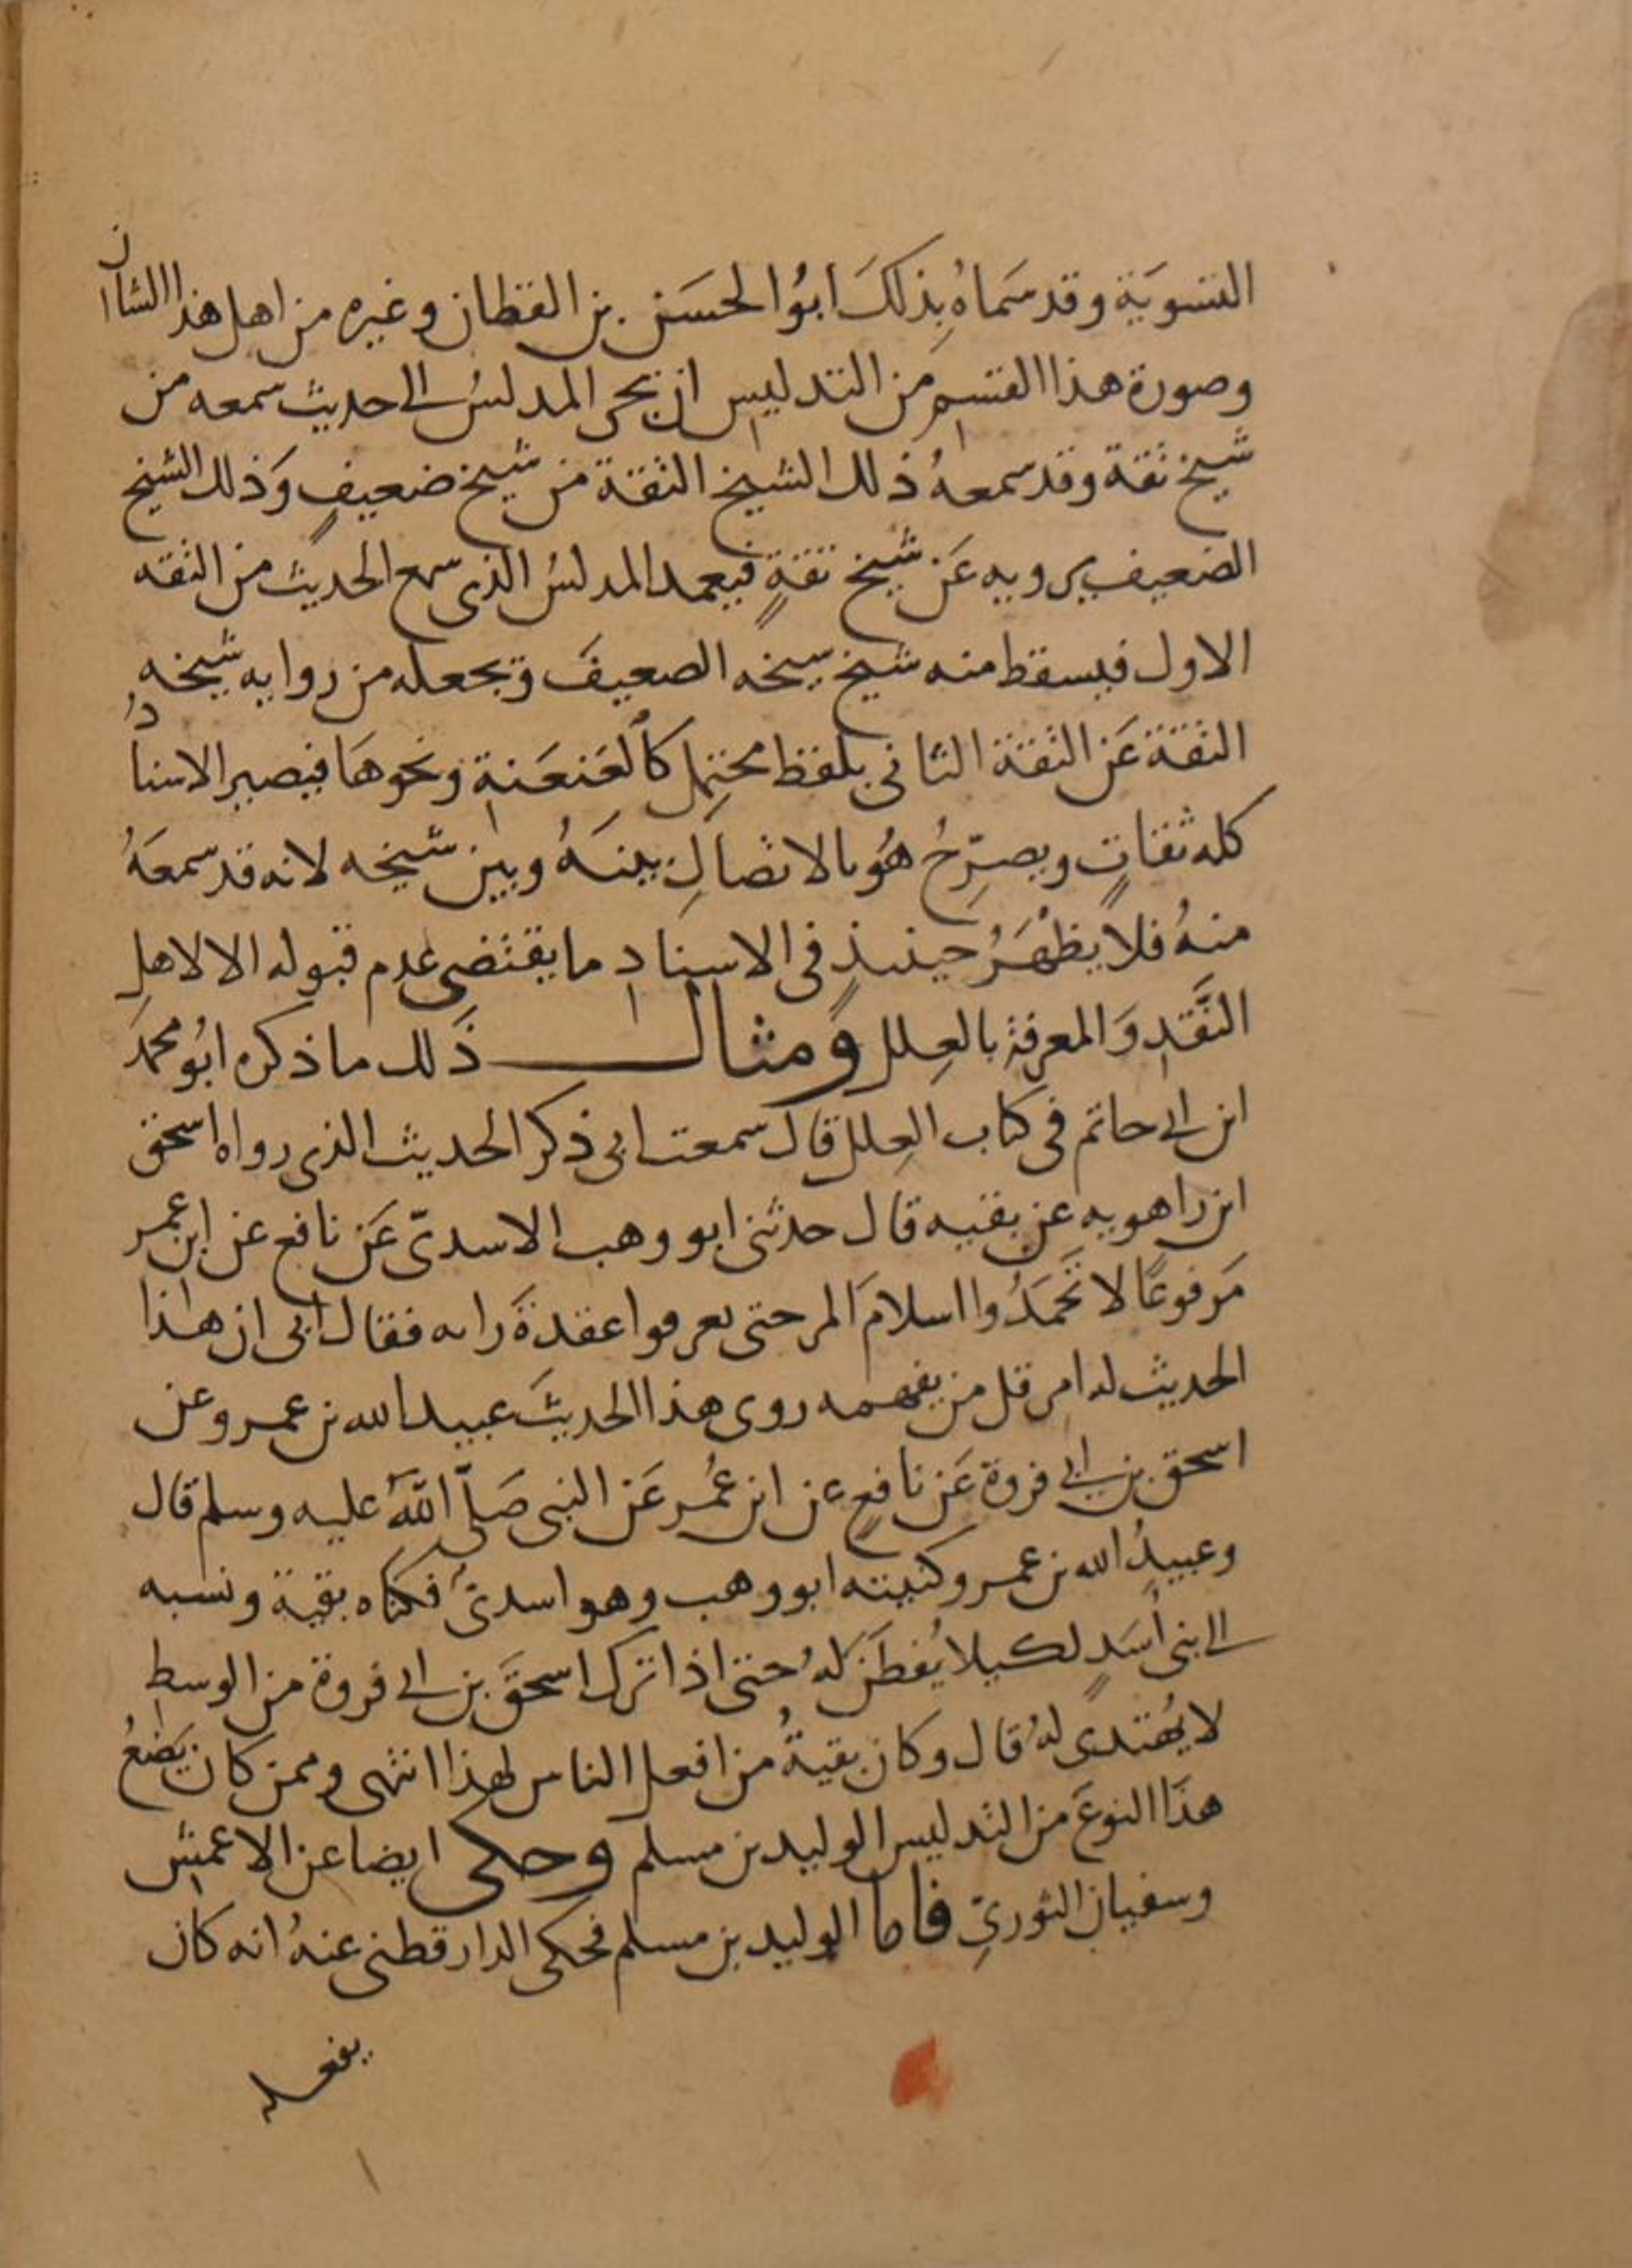 التسوية وقد سَماهُ بِذلكَ ابوُ الحسَن بن القطان وغيره من اهل هذا الشان
وصورة هذا القسمِ من التدليسِ ان يجى المدلسُ الى حديث سمعه من
شيخ ثقة وقد سمعهُ ذلك الشيخ الثقة من شيخ ضعيفٍ وَذلك الشيخ
الضعيف يرويه عَن شيخ ثقةٍ فيعمد المدلسُ الذى سمع الحديث من الثقه
الاول فيسقط منه شيخ سيخه الصعيفَ ويجعله من روايه شيخه
الثقة عَن الثقة الثانى بلفظ محتملٍ كالعَنعَنةِ ونحوهَا فيصير الاسنادُ
كله ثقاتٍ ويصرّحُ هُو بالاتصالِ بينَهُ وبين شيخه لانه قد سمعَهُ
منهُ فلا يظهَرُ حينئذٍ فى الاسنادِ ما يقتضى عدم قبوله الا لاهلِ
النَّقدِ وَالمعرفة بالعِلل ومثال ذَلك ما ذكره ابوُ محمدَ
ابن ابى حاتم فى كتاب العِلل قال سمعت ابى ذكر الحديث الذى رواه اسحق
ابن راهويه عن بقيه قال حدثنى ابو وهب الاسدىّ عَن نافع عن ابن عمر
مَرفوعًا لا تَحمَدُوا اسلامَ المر حتى تعرفوا عقدةَ رايه فقال ابى ان هذا
الحديث له امر قل من يفهمه روى هذا الحديثَ عبيد الله بن عمرو عن
اسحق بن ابى فروة عَن نافعٍ عن ابن عُمر عَن النبى صَلّى اللهُ عليه وسلم قال
وعبيدُ الله بن عمرو كنيته ابو وهب وهو اسدىٌ فكناه بقية ونسبه
الى بنى أسَدٍ لكيلا يُفطَن لهُ حتى اذا ترك اسحقَ بن ابى فروة من الوسطِ
لا يُهتدى لهُ قال وكان بقيةُ من افعل الناس لهذا انتهى وممن كان يَصْنعُ
هذَا النوعَ من التدليس الوليد بن مسلم وحكى ايضا عن الاعمشِ
وسفيان الثورىِّ فاما الوليد بن مسلم فحكى الدارقطنى عنهُ انه كان
يفعله